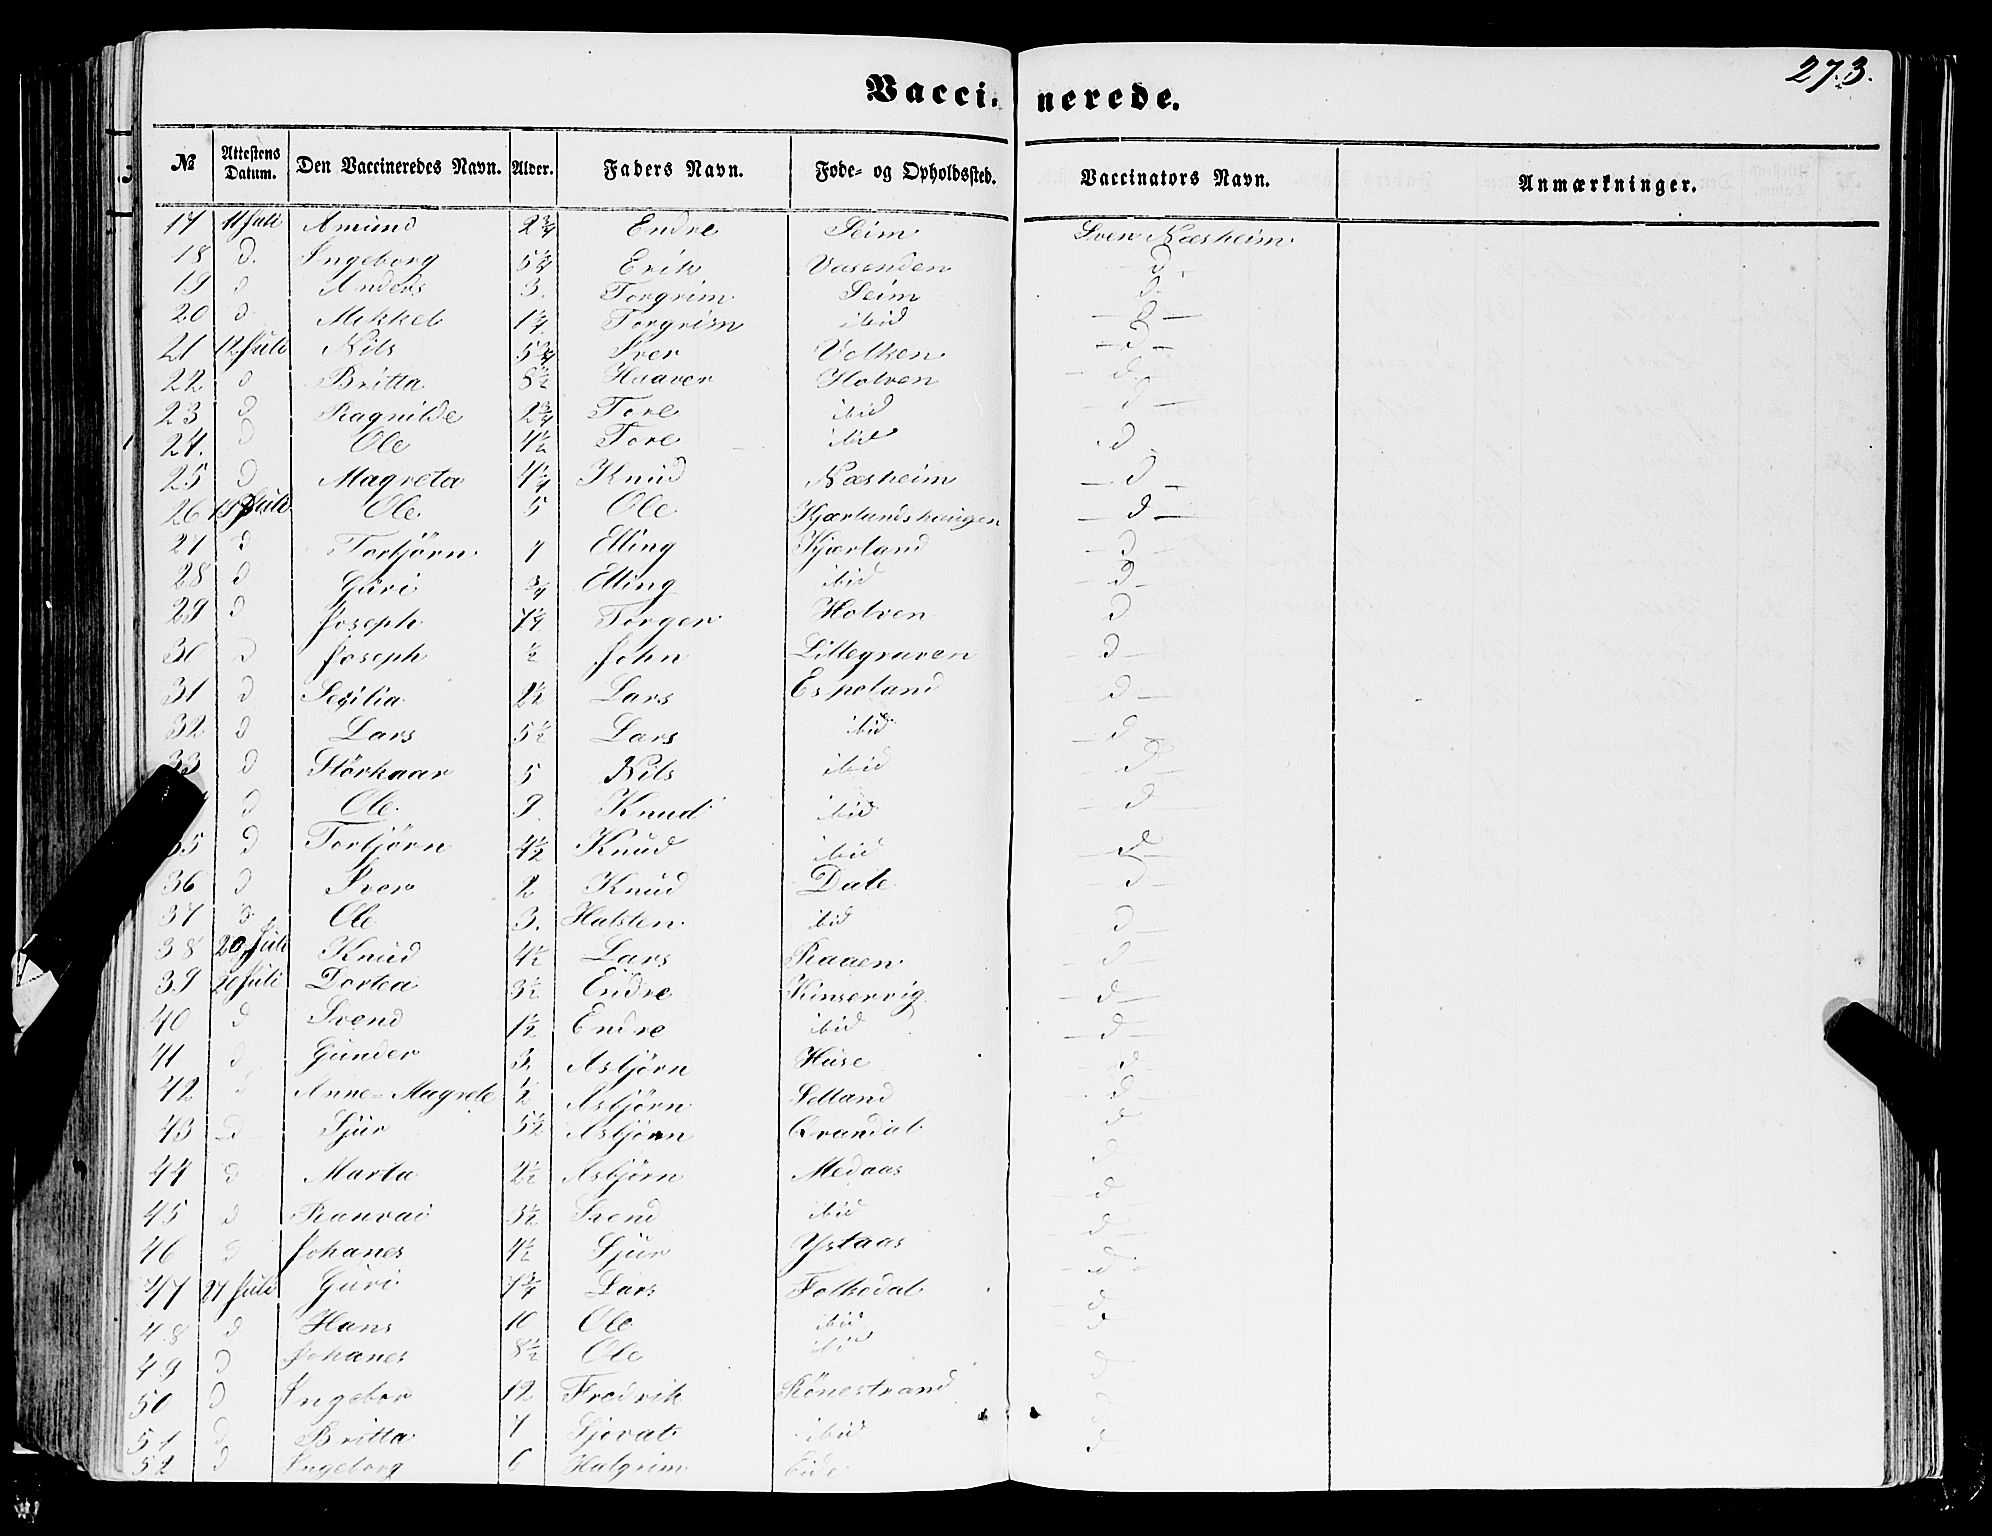 273.
Vaccinerede.
№ Attestens Datum. Den Vaccineredes Navn. Alder. Faders Navn. Føde- og Opholdssted. Vaccinators Navn. Anmærkninger.
17 11 Juli Amund 2 3/4 Endre Seim Sven Næsheim
18 d. Ingeborg 5 3/4 Erik Vasenden d.
19 d Anders 3. Torgrim Seim d.
20 d. Mikkel 1 1/4 Torgrim ibid d
21 12 Juli Nils 5 3/4 Sver Velken d
22 d Britta 8 1/2 Haaver Holven d
23 d Ragnilde 2 3/4 Tore ibid d
24. d Ole 4 1/2 Tore ibid d
25 d Magreta 4 1/4 Knud Næsheim d
26 Juli Ole 5 Ole Kjærlandshaugen d
27 d Torbjörn 7 Elling Kjærland d
28 d Guri 3/4 Elling ibid d
29 d Joseph 7 1/4 Torger Holven d
30 d Joseph 1/2 John Littlegraven d
31 d Secilia 2 1/2 Lars Espeland d
32 d Lars 5 1/2 Lars ibid d
33 d Störkaar 5 Nils ibid d
d Ole. 9. Knud ibid d
35 d Torbjörn 4 1/2 Knud ibid d
36 d Sver 2 Knud Dale d
37 d. Ole 3. Halsten ibid d
38 20 Juli Knud 4 1/2 Lars Raaen d
39 20 Juli Dortea 3 1/2 Endre Kinservig d
40 d Svend 1 1/2 Endre ibid d
41 d Gunder 3. Asbjörn Huse d
42 d Anne-Magrete 1/2 Asbjörn Setland d
43 d Sjur 5 1/2 Asbjörn Qvandal d
44 d Marta 2 1/2 Asbjörn Medaas d
45 d Ranvai 3 1/2 Svend ibid d
46 d Johanes 4 1/2 Sjur Ystaas d
47 27 Juli Guri 7 3/4 Lars Folkedal d
48 d Hans 10 Ole ibid d
49 d Johanes 8 1/2 Ole ibid d
50 d Ingebor 12 Fredrik Rönestrand d
51 d Britta 7 Sjovat ibid d
52 d Ingeborg 6 Halgrim Eide d